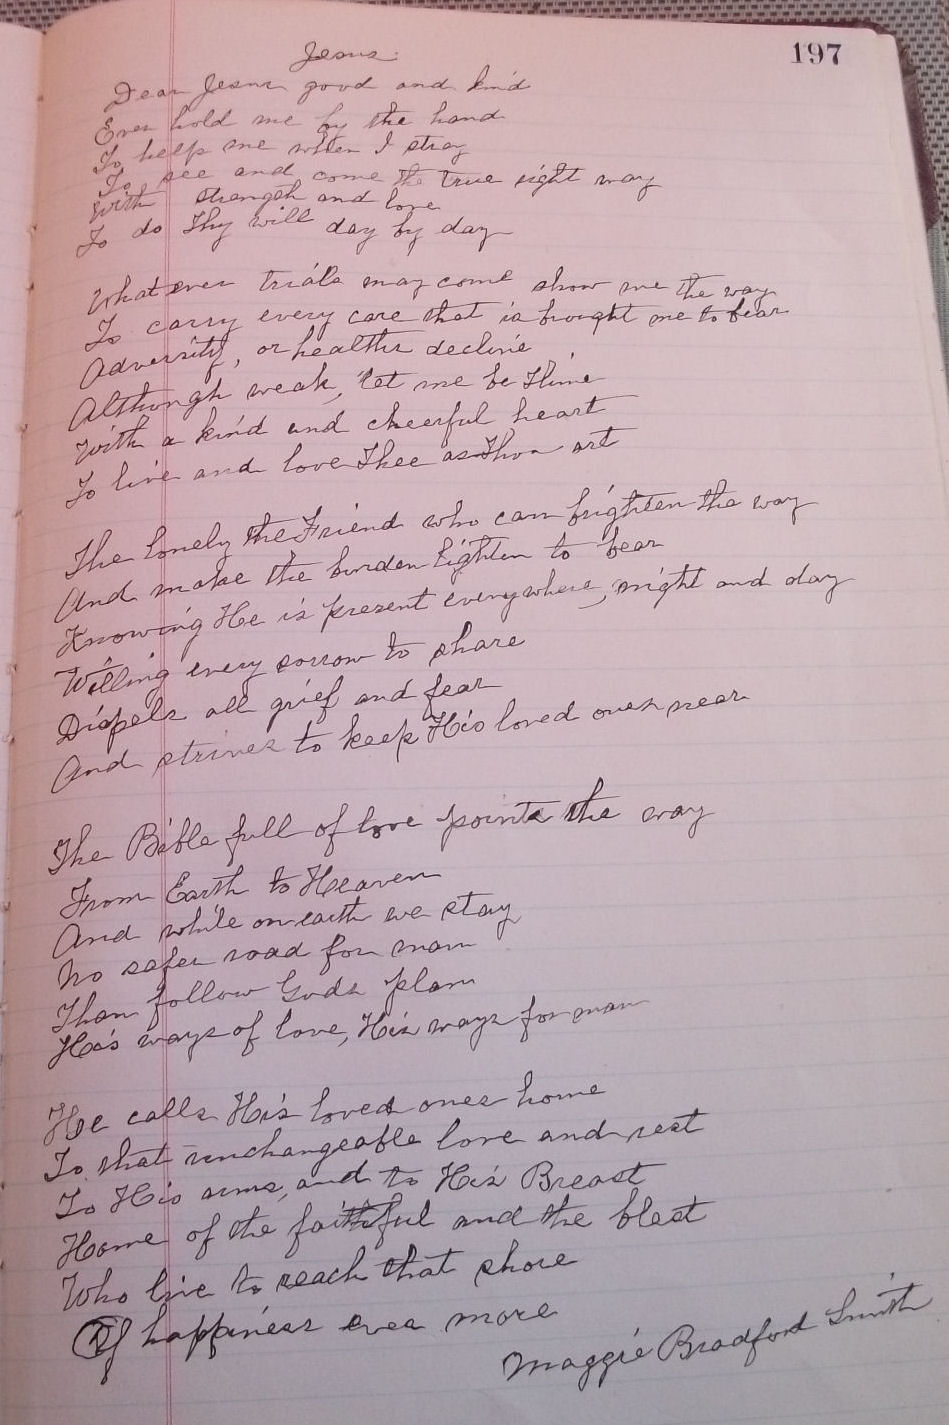 197
Jesus.
Dear Jesus good and kind
Ever hold me by the hand
To help me when I stray
To see and come the true right way
With strength and love
To do Thy will day by day
What ever trials may come show me the way
To carry every care that is brought me to bear
Adversity, or healths decline
Although weak, let me be Thine
With a kind and cheerful heart
To live and love Thee as Thou art
The lonely the Friend who can brighten the way
And make the burden lighten to bear
Knowing He is present everywhere, night and day
Willing every sorrow to share
Dispels all grief and fear
And strives to keep His loved ones near
The Bible full of love points the way
From Earth to Heaven
And while on earth we stay
No safer road for man
Than follow Gods plan
His ways of love, His ways for man
He calls His loved ones home
To that unchangeable love and rest
To His arms, and to His Breast
Home of the faithful and the blest
Who live to reach that shore
Of happiness ever more
Maggie Bradford Smith